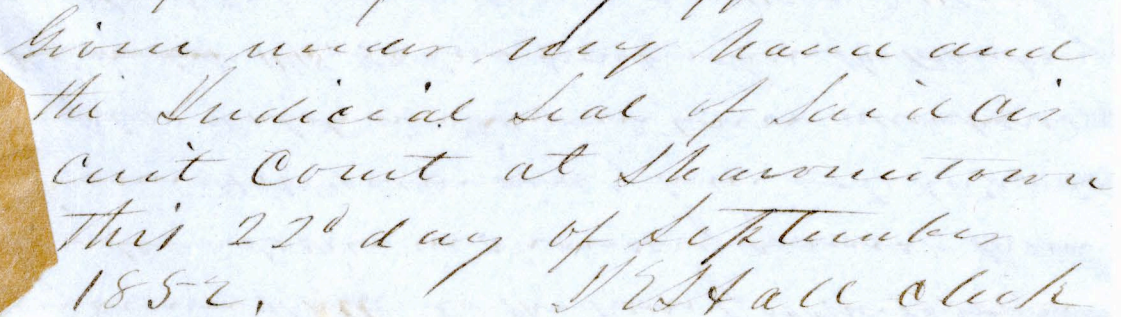 Given under my hand and
the Judicial Seal of Said Cir
cuit Court at Shawneetown
this 22d day of September
1852. Hall clerk